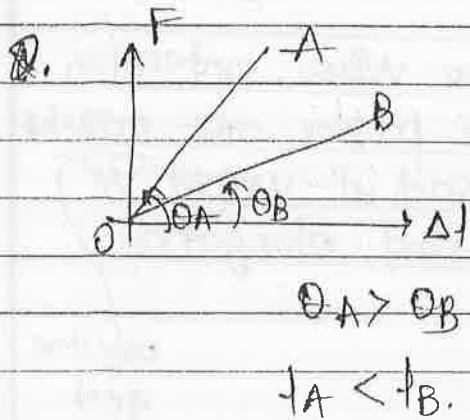 Q.
F
A
B
θA θB
O
Δl
θA > θB
lA < lB.